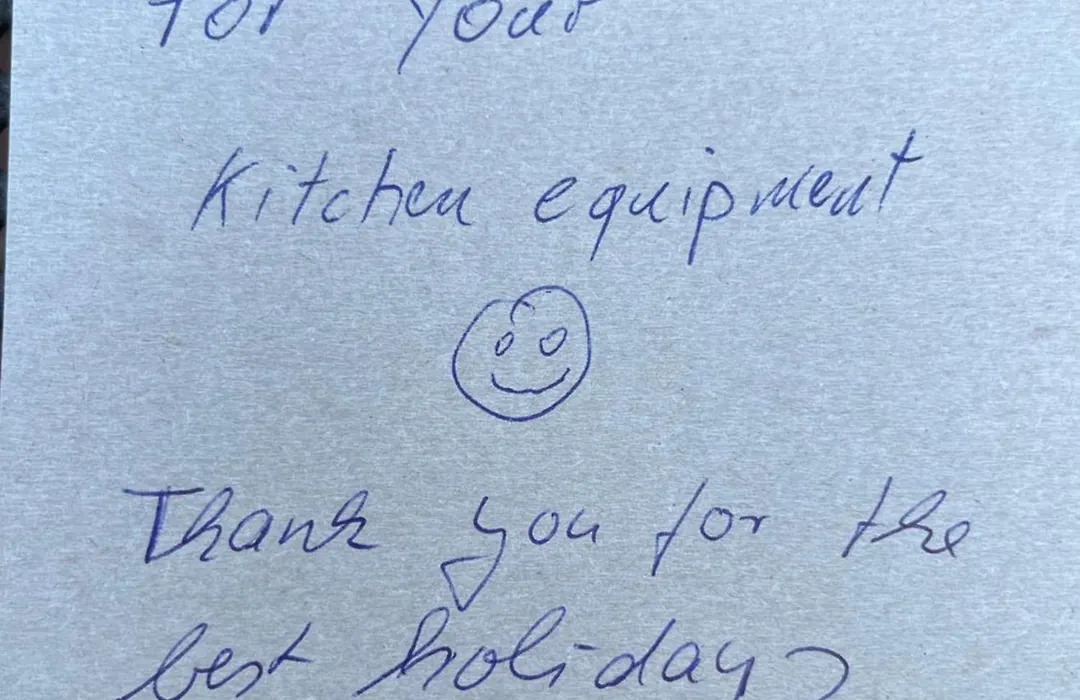 for your
Kitchen equipment
Thank you for the
best holidays